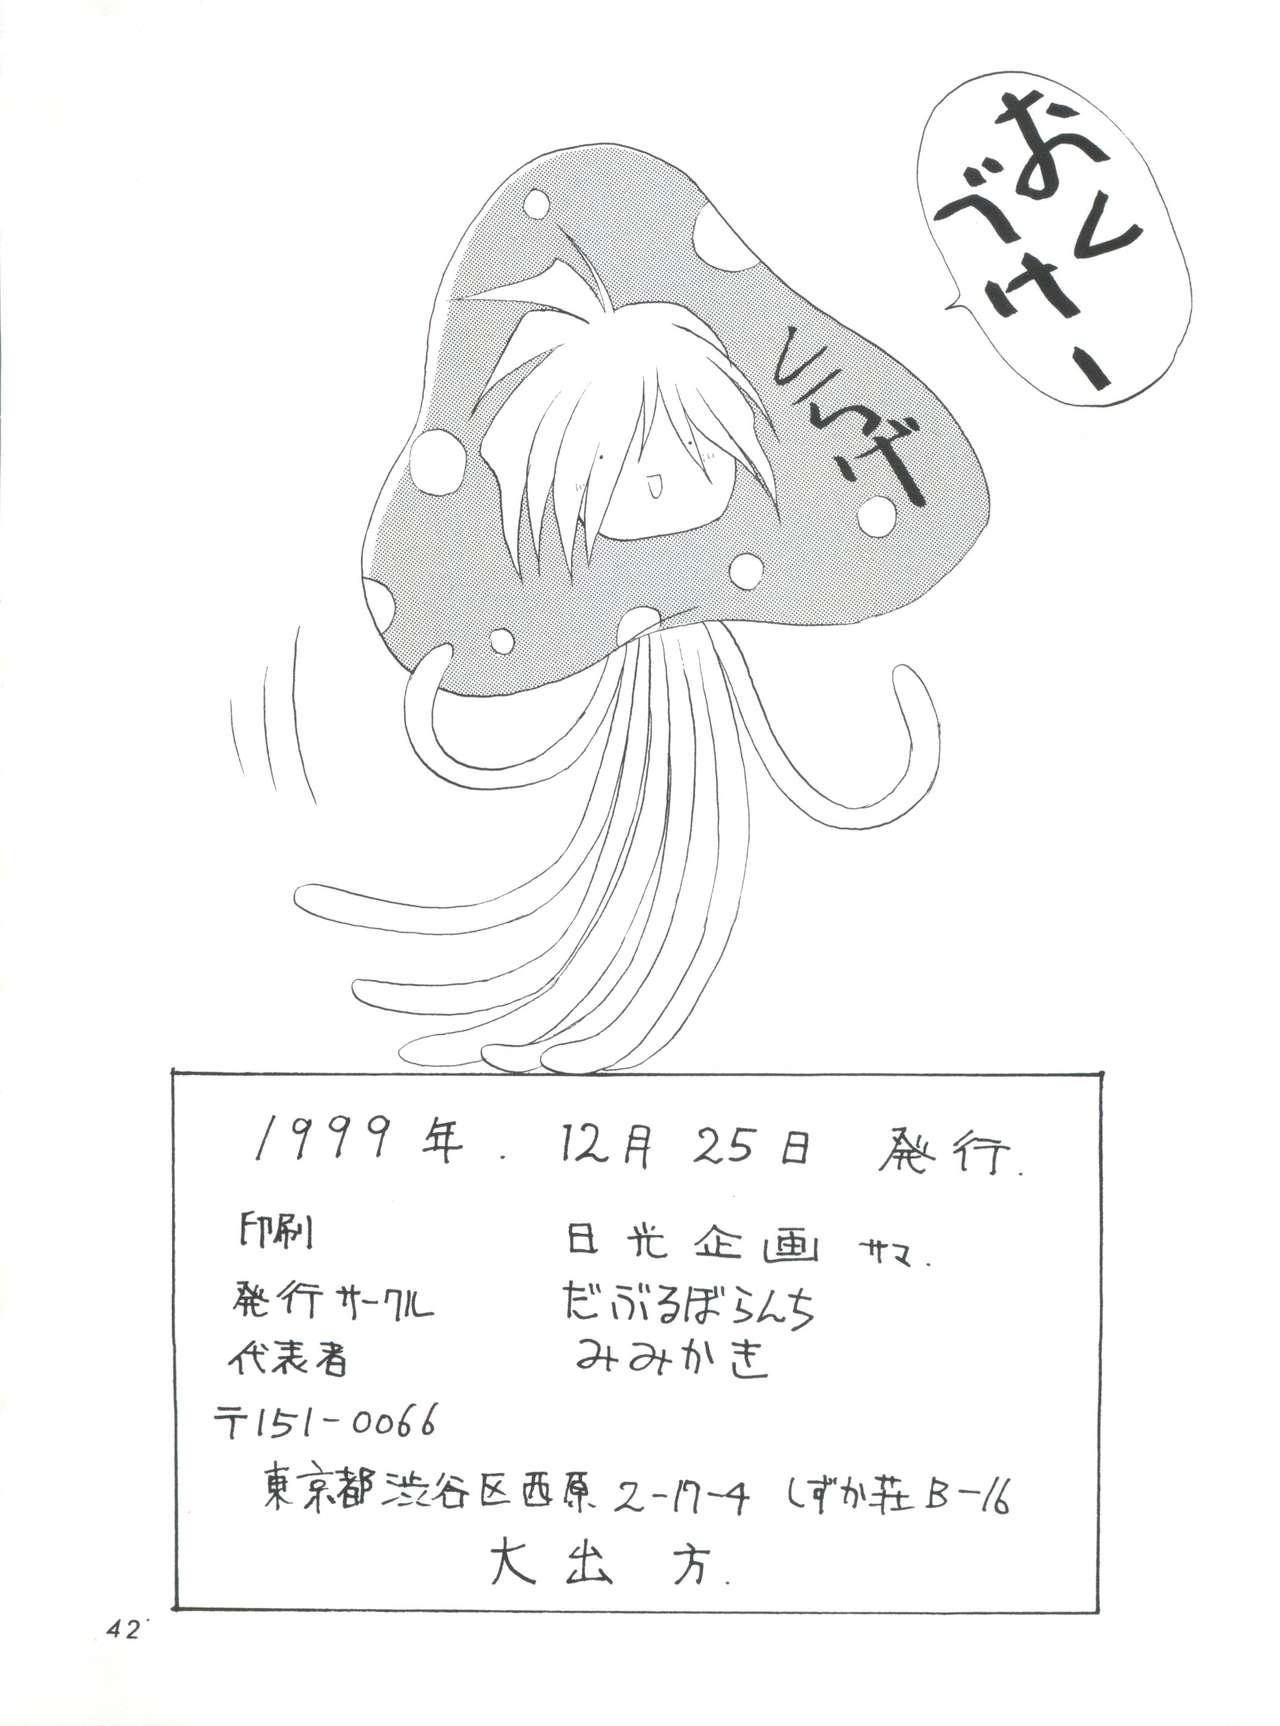 おく
づけー
くらげ
1999年. 12月25日 発行.
印刷 日光企画 サマ.
発行サークル だぶるぼらんち
代表者 みみかき
〒151-0066
東京都渋谷区西原2-17-4 しずか荘B-16
大出 方.
42